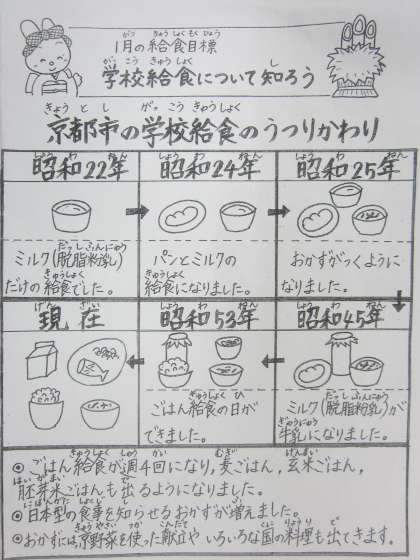 1月の給食目標
学校給食について知ろう
京都市の学校給食のうつりかわり
昭和22年
ミルク(脱脂粉乳)
だけの給食でした。
昭和24年
パンとミルクの
給食になりました。
昭和25年
おかずがつくように
なりました。
昭和45年
ミルク(脱脂粉乳)が
牛乳になりました。
昭和53年
ごはん給食の日が
できました。
現在
◎ごはん給食が週4回になり,麦ごはん,玄米ごはん,
胚芽米ごはんも出るようになりました。
◎日本型の食事を知らせるおかずが増えました。
◎おかずには京野菜を使った献立やいろいろな国の料理も出てきます。